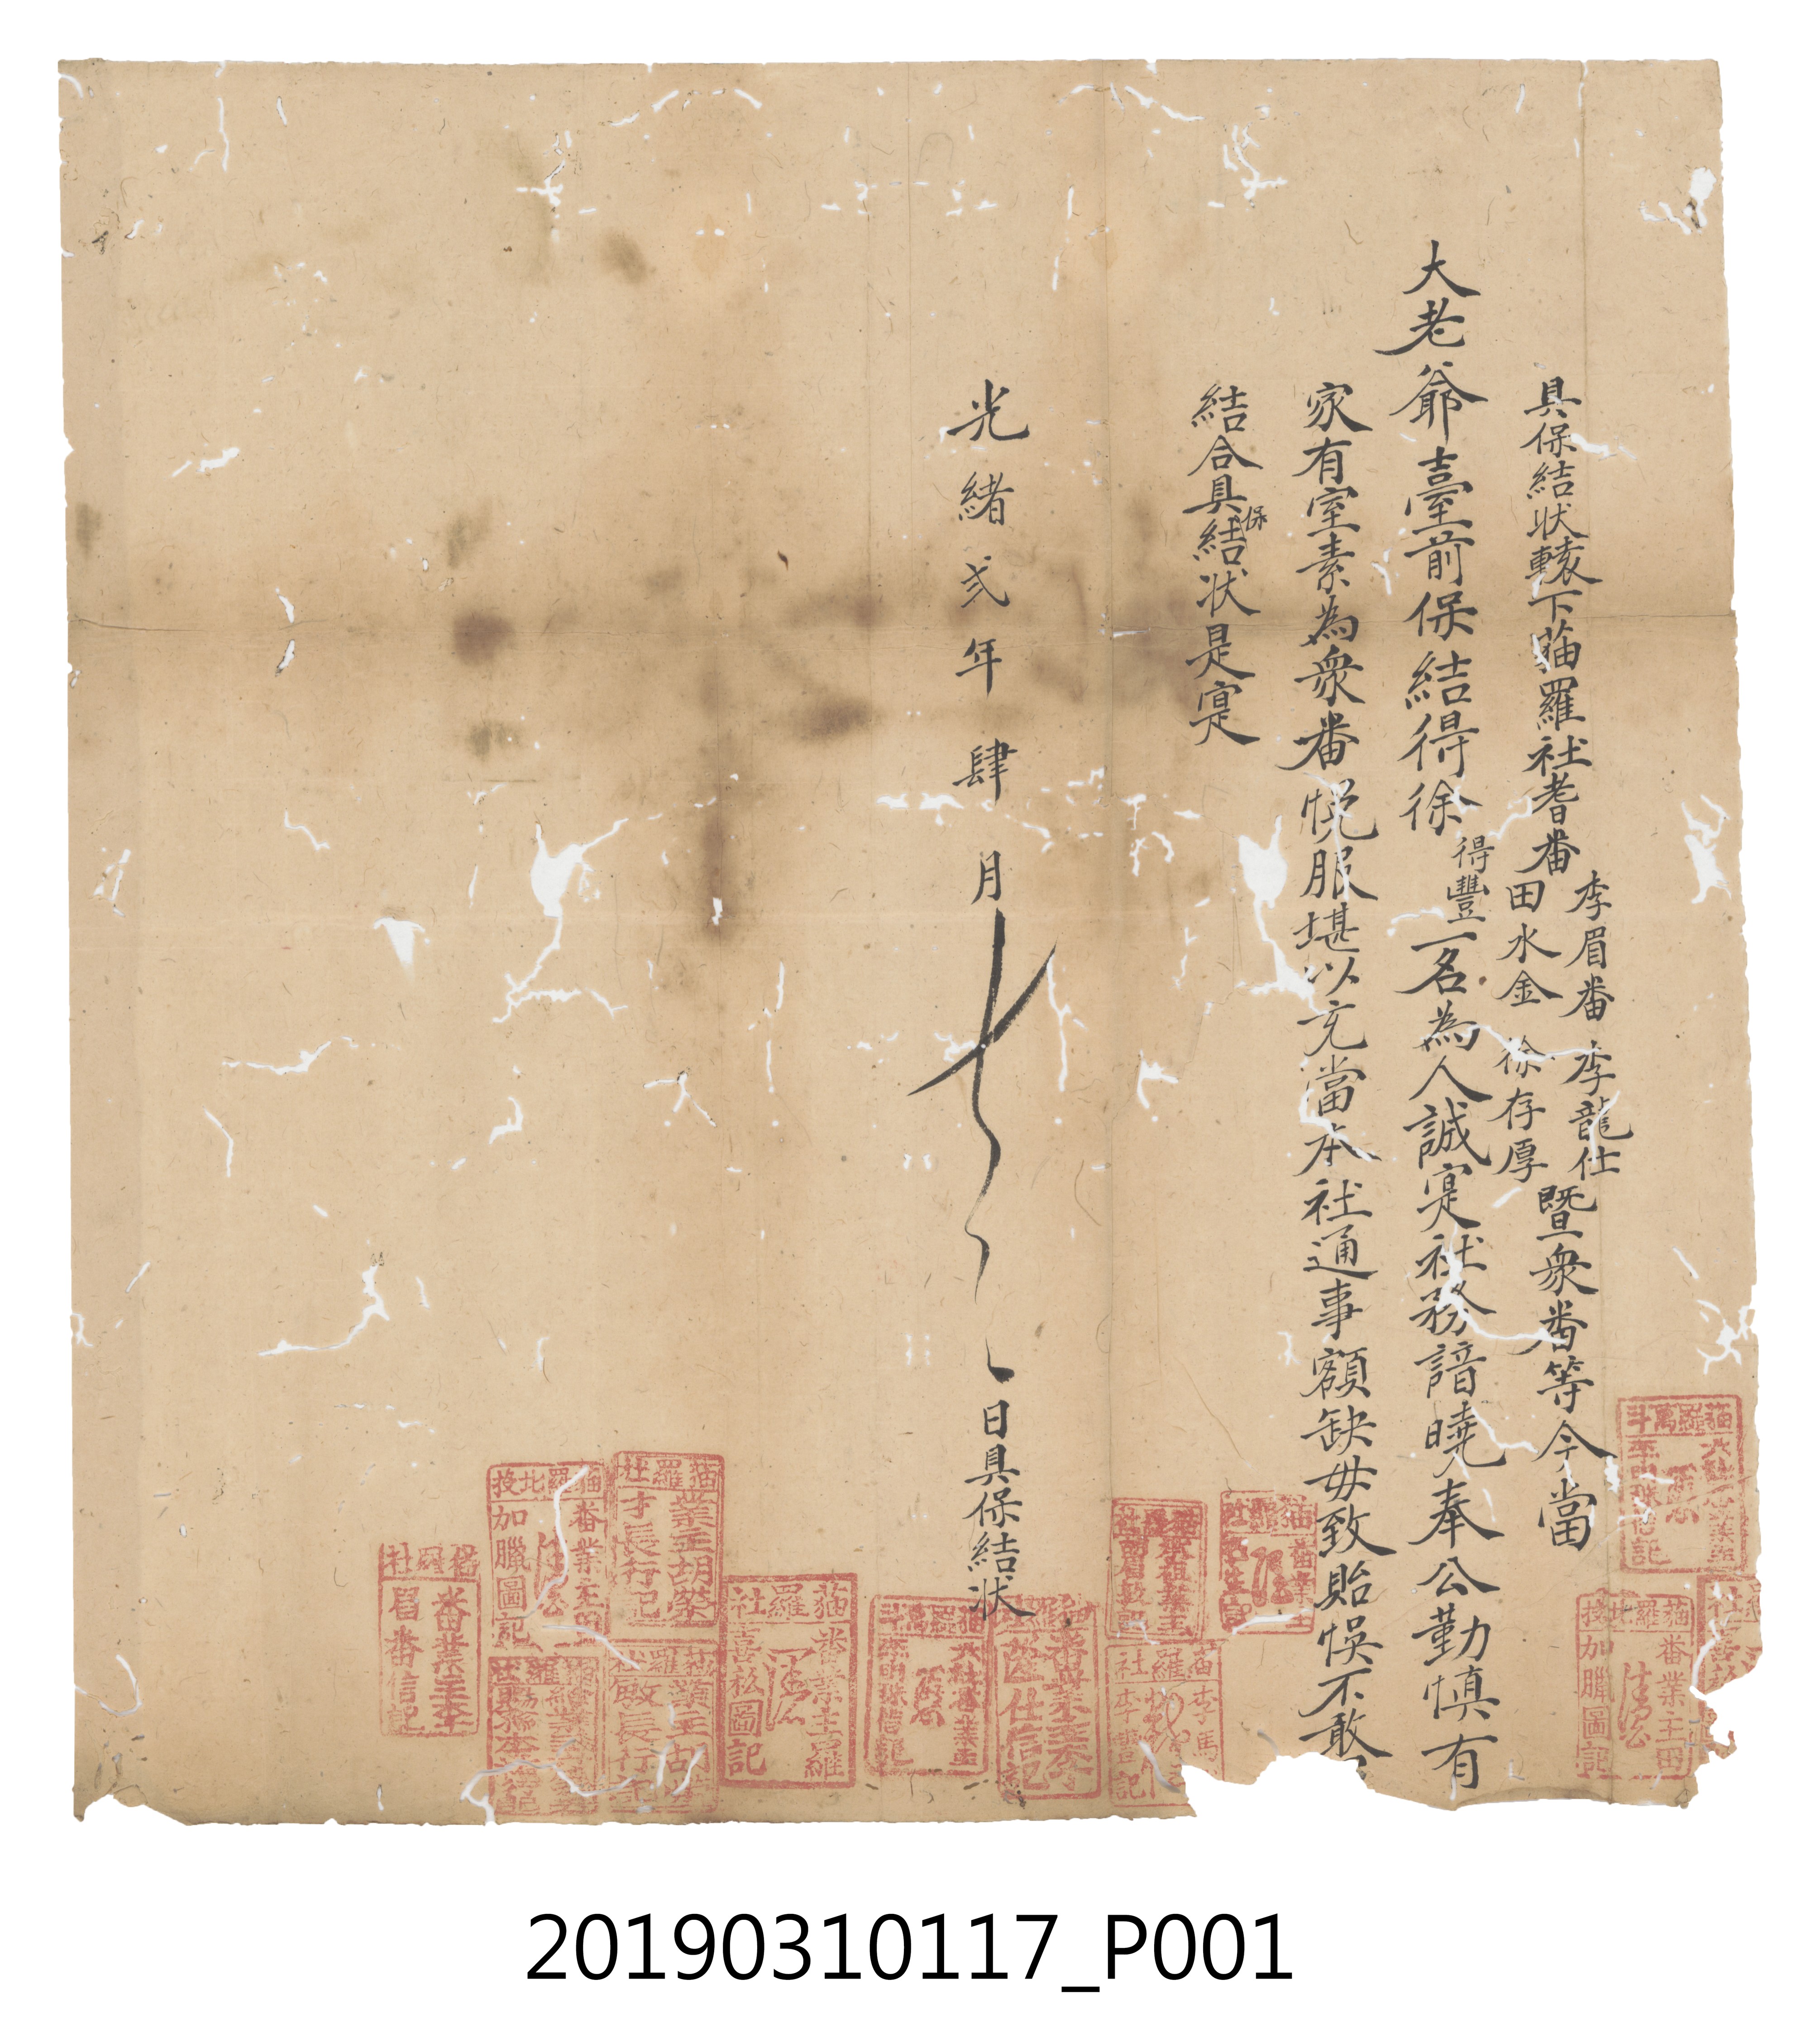 具保結狀轅下猫羅社耆番李眉番 李龍仕 田水金 徐存厚暨衆番等今當
大老爺臺前保結得徐得豐一名為人誠寔社務諳曉奉公勤慎有
家有室素為衆番悅服堪以充當本社通事額缺毋致貽悞不敢
結合具保結狀是寔
光緒弍年肆月
日具保結狀
猫羅萬斗
猫羅北投 番業主田 加臘圖記
猫羅社 李馬 李豐記
猫羅社 番業主羅 喜崧圖記
猫羅社 業主胡 敏長行記
猫羅社 業主胡榮 才長行記
猫羅北投 番業主田 加臘圖記
猫羅社 番業主李 眉番信記
20190310117_P001